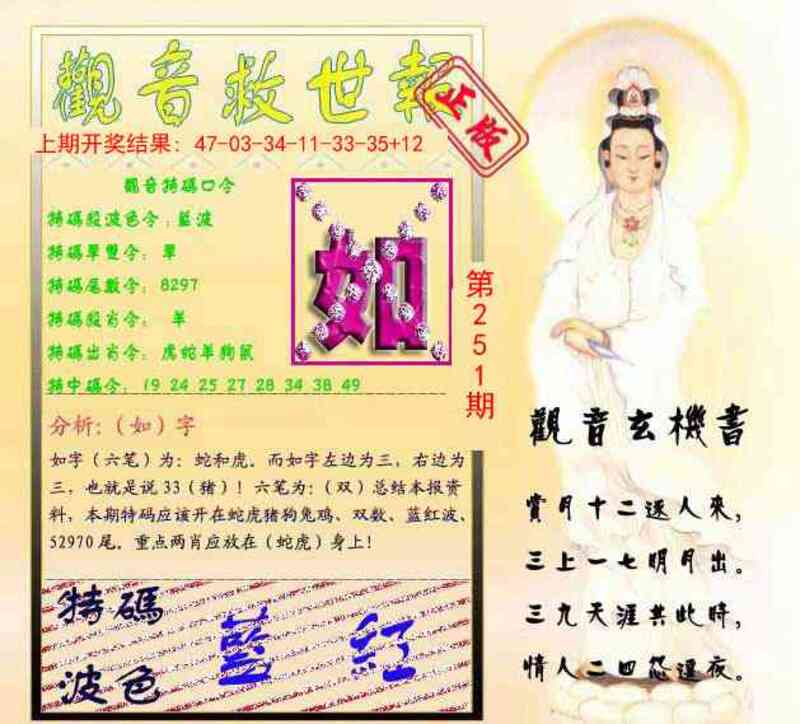 觀音救世報
正版
上期开奖结果：47-03-34-11-33-35+12
觀音特碼口令
特碼殺波色令：藍波
特碼單雙令：單
特碼尾數令：8297
特碼殺肖令：羊
特碼出肖令：虎蛇羊狗鼠
特中碼令：19 24 25 27 28 34 38 49
如
第251期
分析：（如）字
如字（六笔）为：蛇和虎。而如字左边为三，右边为
三，也就是说33（猪）！六笔为：（双）总结本报资
料，本期特码应该开在蛇虎猪狗兔鸡、双数、蓝红波、
52970尾。重点两肖应放在（蛇虎）身上！
特碼
波色
藍 紅
觀音玄機書
賞月十二逐人來，
三上一七明月出。
三九天涯共此時，
情人二四怨遥夜。